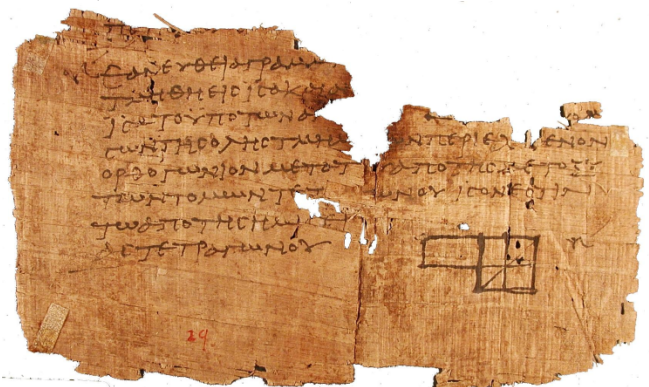 ΕΑΝ ΕΥΘΕΙΑ ΓΡΑΜΜ
ΤΜΗΘΗ ΕΙϹ ΙϹΑ ΚΑΙ Α
ΙϹΑ ΤΟ ΥΠΟ ΤΩΝ Α
ϹΩΝ ΤΗϹ ΟΛΗϹ ΤΜΗΜ ΩΝ ΠΕΡΙΕΧ ΕΝΟΝ
ΟΡΘΟΓΩΝΙΟΝ ΜΕΤΑ Τ ΑΠΟ ΤΗϹ ΜΕΤΟΞΥ
ΤΩΝ ΤΟΜΩΝ ΤΕΤ ΩΝΟΥ ΙϹΟΝ ΕϹΤΙΝ
ΤΩ ΑΠΟ ΤΗϹ ΗΜΙϹ
ΑϹ ΤΕΤΡΑΓΩΝΟΥ
29